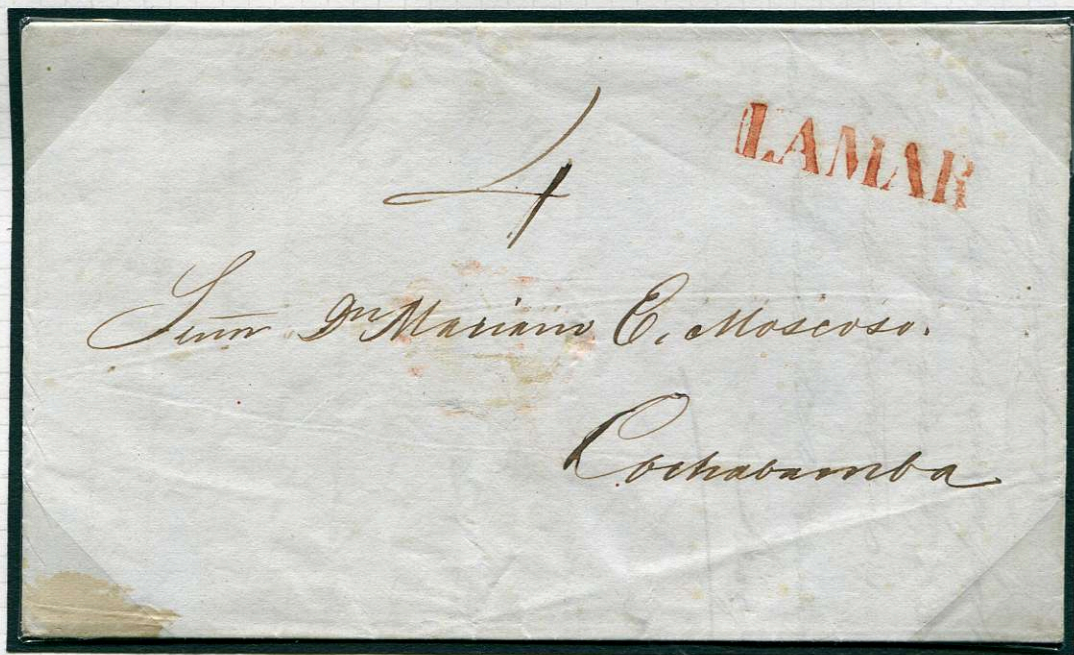 4
LAMAR
Señor Dn Mariano E. Moscoso.
Cochabamba